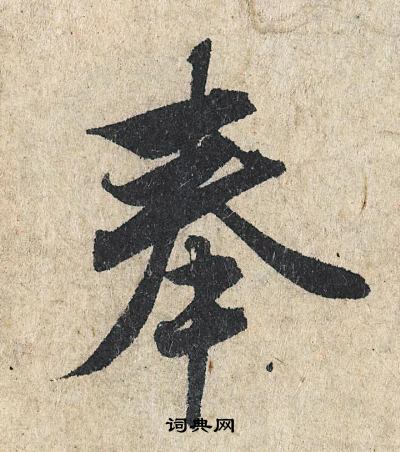 奉
词典网